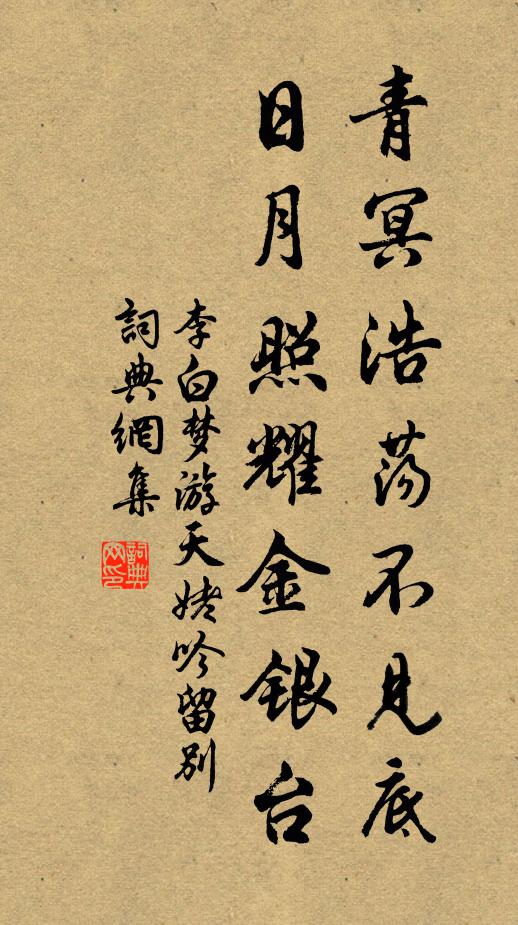 青冥浩荡不见底
日月照耀金银台
李白梦游天姥吟留别
詞典網集
詞典网印